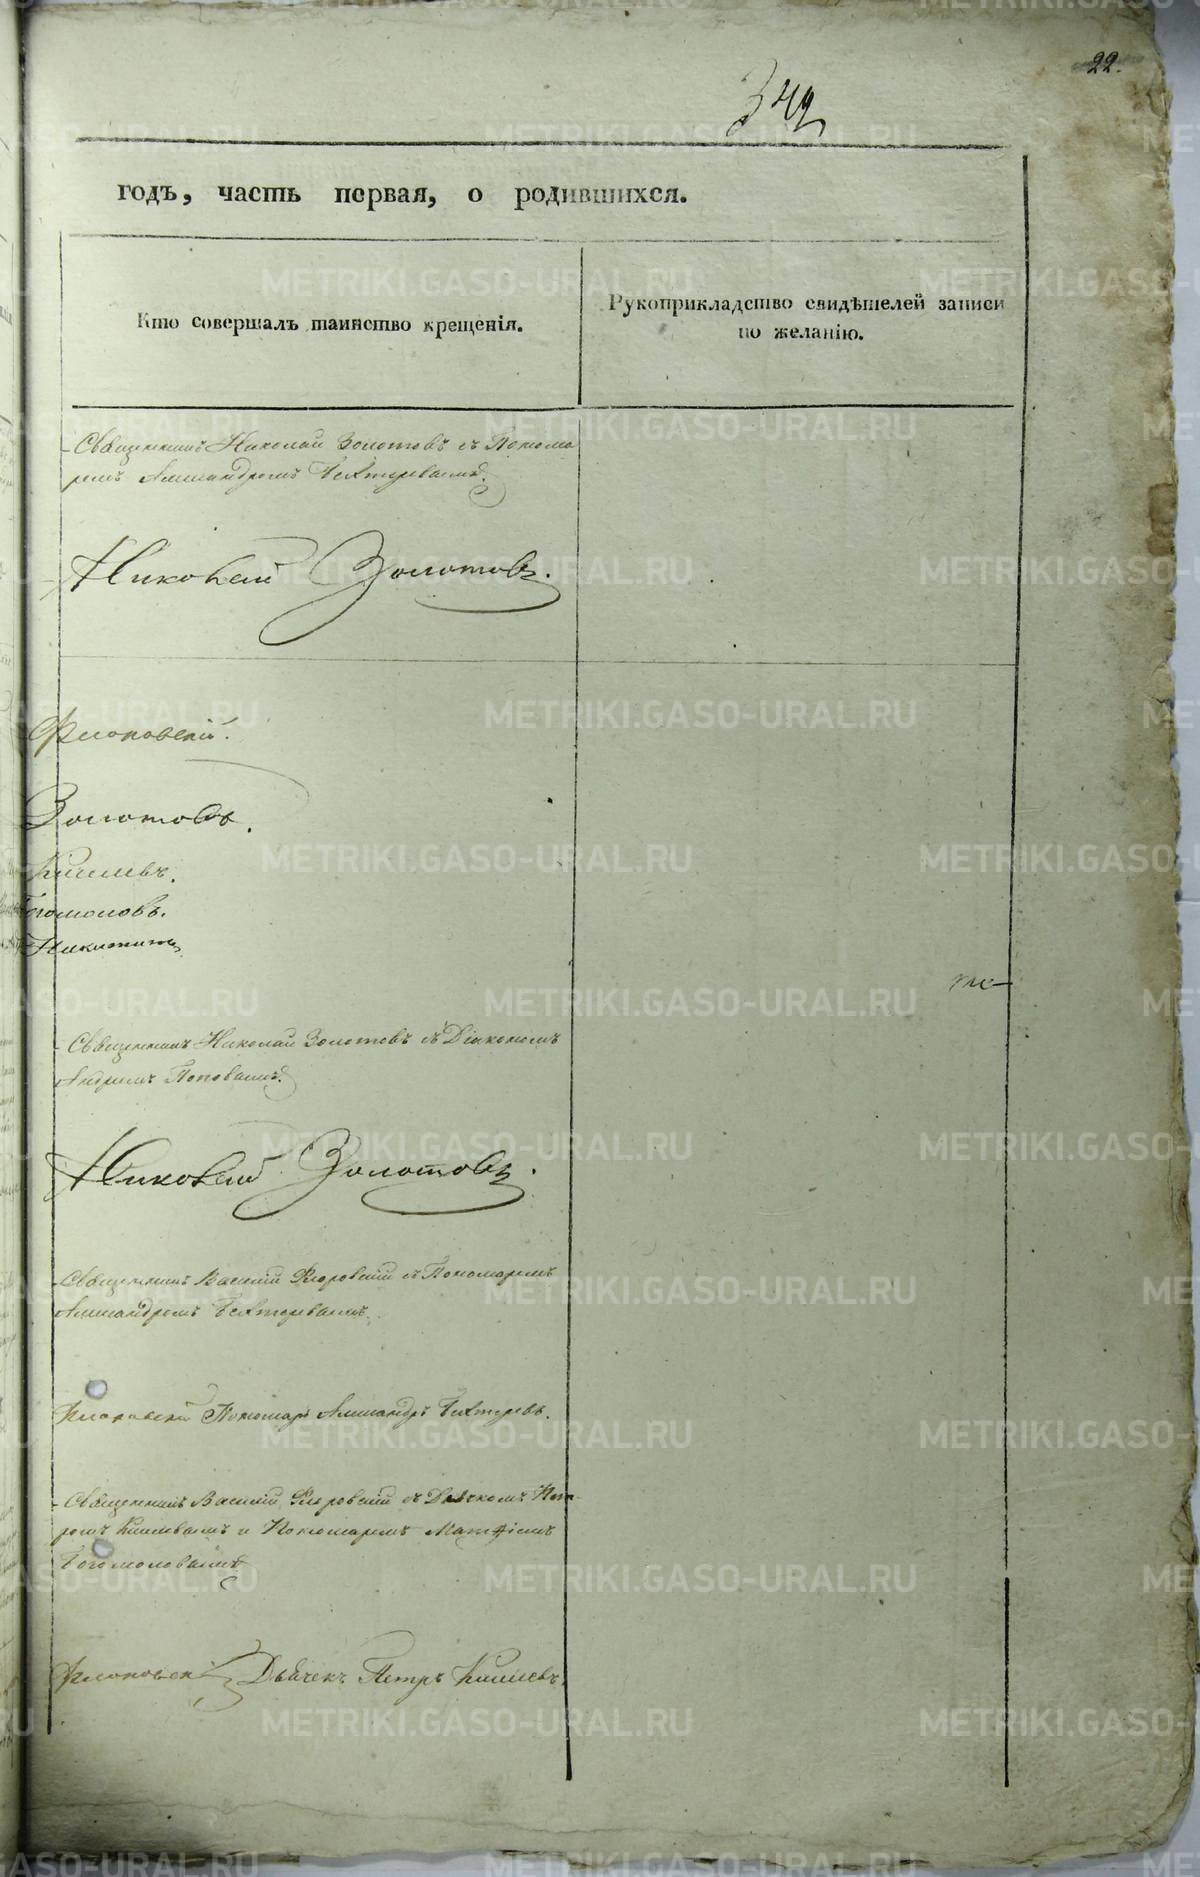 22.
342
годъ, часть первая, о родившихся.
Кто совершалъ таинство крещенія.
Рукоприкладство свидѣтелей записи
по желанію.
Священникъ Николай Золотовъ съ Понома
ремъ Александромъ Бехтеревымъ.
Николай Золотовъ.
Флоровскій.
Золотовъ.
Киселевъ.
Богомоловъ.
Никитинъ
Священникъ Николай Золотовъ съ Діакономъ
Андреемъ Поповымъ.
Николай Золотовъ.
Священникъ Василій Флоровскій съ Пономаремъ
Александромъ Бехтеревымъ.
Флоровскій Пономарь Александръ Бехтеревъ.
Священникъ Василій Флоровскій съ Дьячкомъ Пет
ромъ Киселевымъ и Пономаремъ Матфіемъ
Богомоловымъ
Флоровскій Дьячекъ Петръ Киселевъ.
METRIKI.GASO-URAL.RU